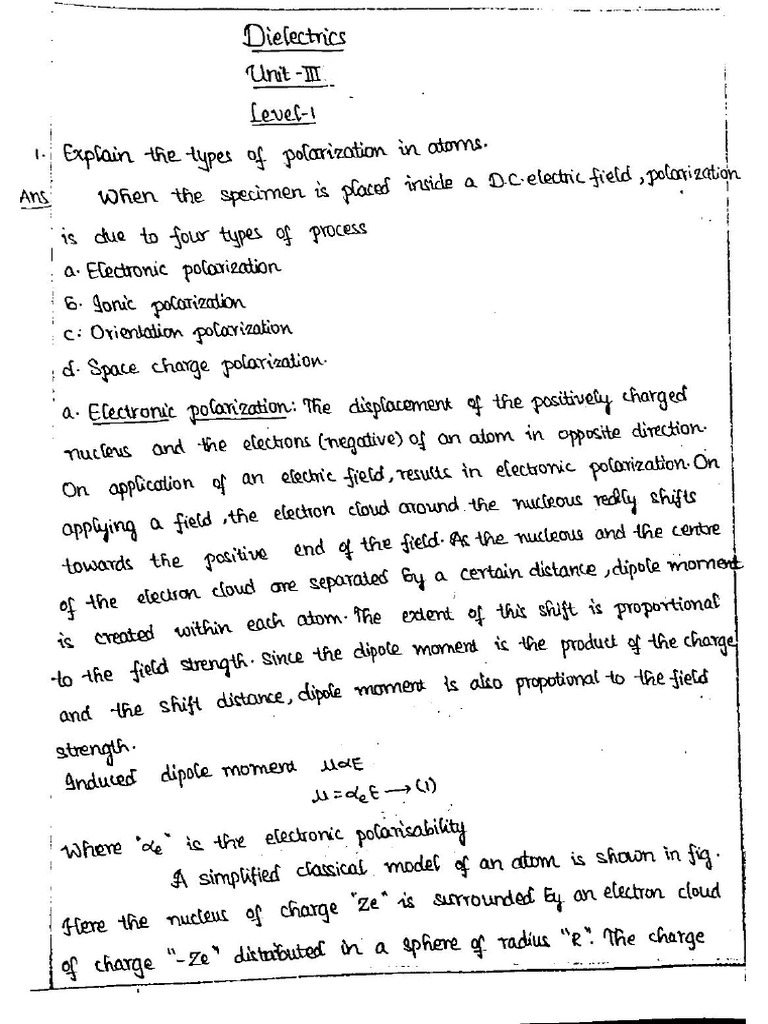 Dielectrics
Unit-III
Level-1
1. Explain the types of polarization in atoms.
Ans When the specimen is placed inside a D.C. electric field, polarization
is due to four types of process
a. Electronic polarization
b. Ionic polarization
c. Orientation polarization
d. Space charge polarization.
a. Electronic polarization: The displacement of the positively charged
nucleus and the electrons (negative) of an atom in opposite direction.
On application of an electric field, results in electronic polarization. On
applying a field, the electron cloud around the nucleous redily shifts
towards the positive end of the field. As the nucleous and the centre
of the electron cloud are separated by a certain distance, dipole moment
is created within each atom. The extent of this shift is proportional
to the field strength. Since the dipole moment is the product of the charge
and the shift distance, dipole moment is also propotional to the field
strength.
Induced dipole moment μαE
μ = αeE → (1)
Where "αe" is the electronic polarisability
A simplified classical model of an atom is shown in fig.
Here the nucleus of charge "Ze" is surrounded by an electron cloud
of charge "-Ze" distributed in a sphere of radius "R". The charge